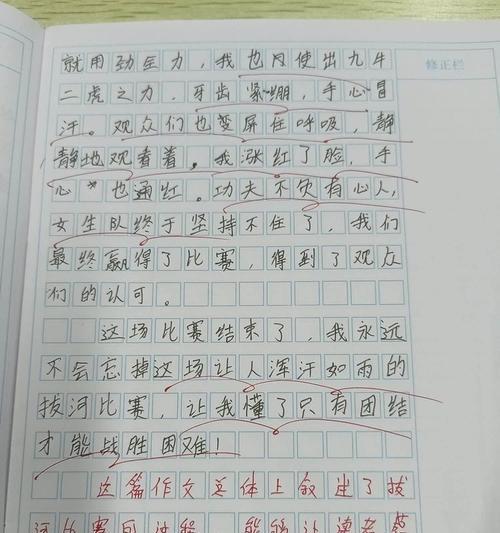 修正栏
就用劲全力，我也又使出九牛
二虎之力，牙齿紧绷，手心冒
汗。观众们也变屏住呼吸，静
静地观看着。我涨红了脸，手
心也通红。功夫不负有心人，
女生队终于坚持不住了，我们
最终赢得了比赛，得到了观众
们的认可。
这场比赛结束了，我永远
不会忘掉这场让人浑汗如雨的
拔河比赛，让我懂了只有团结
才能战胜困难！
这篇作文总体上叙述了拔
河比赛的过程，能够让读者